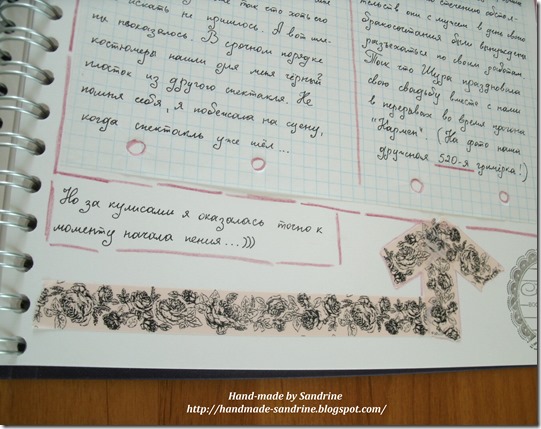 искать не пришлось. А вот
показалось. В срочном порядке
костюмера нашли для меня чёрный
платок из другого спектакля. Не
помня себя, я побежала на сцену,
когда спектакль уже шёл...
они с мужем в день своего
бракосочетания были вынуждены
разъехаться по своим работам.
Так что Шура праздновала
свою свадьбу вместе с нами
в перерывах во время прогона
"Кармен". (На фото наша
дружная 520-я гримёрка!)
Но за кулисами я оказалась точно к
моменту начала пения...)))
Hand-made by Sandrine
http://handmade-sandrine.blogspot.com/